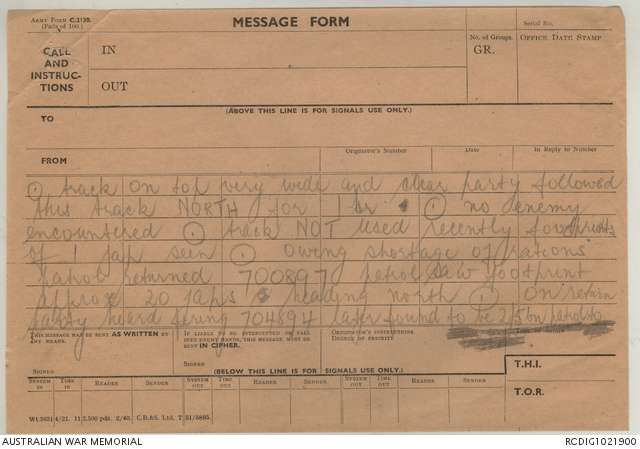 ARMY FORM C.2136.
(Pads of 100.)
MESSAGE FORM
Serial No.
CALL
AND
INSTRUC-
TIONS
IN
OUT
No. of Groups.
GR.
OFFICE DATE STAMP
(ABOVE THIS LINE IS FOR SIGNALS USE ONLY.)
TO
FROM
Originator's Number
Date
In Reply to Number
⊙ track on top very wide and clear party followed
this track NORTH for 1 hr ⊙ no enemy
encountered ⊙ track NOT used recently footprints
of 1 jap seen ⊙ owing shortage of rations
patrol returned 700897 patrol saw footprint
approx 20 japs heading north ⊙ on return
party heard firing 704894 later found to be 2/5 bn patrol
THIS MESSAGE MAY BE SENT AS WRITTEN BY
ANY MEANS.
SIGNED
IF LIABLE TO BE INTERCEPTED OR FALL
INTO ENEMY HANDS, THIS MESSAGE MUST BE
SENT IN CIPHER.
SIGNED
ORIGINATOR'S INSTRUCTIONS.
DEGREE OF PRIORITY
(BELOW THIS LINE IS FOR SIGNALS USE ONLY.)
T.H.I.
T.O.R.
SYSTEM IN
TIME IN
READER
SENDER
SYSTEM OUT
TIME OUT
READER
SENDER
SYSTEM OUT
TIME OUT
READER
SENDER
AUSTRALIAN WAR MEMORIAL
RCDIG1021900